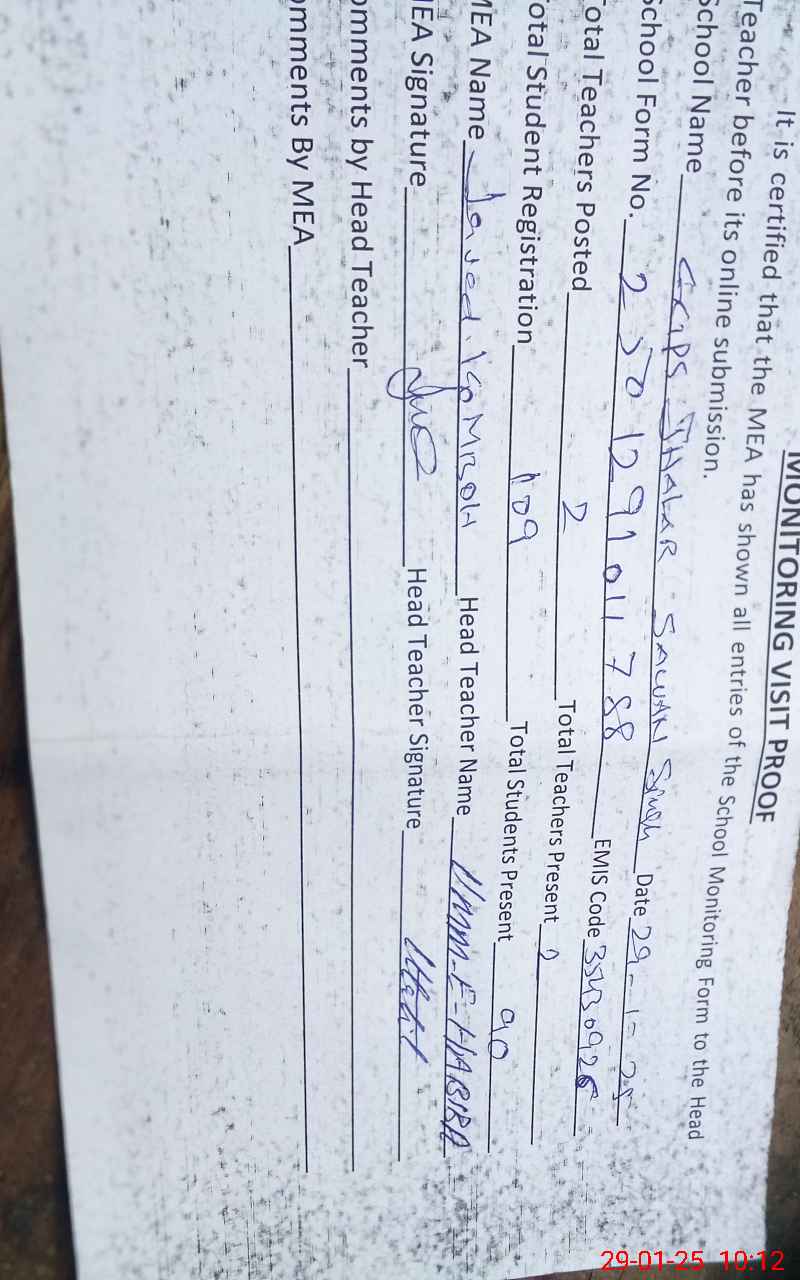 MONITORING VISIT PROOF
It is certified that the MEA has shown all entries of the School Monitoring Form to the Head
Teacher before its online submission.
School Name GGPS JHALAR SAWAN Singh Date 29-1-25
School Form No. 2501291011788 EMIS Code 35430926
otal Teachers Posted 2 Total Teachers Present 2
otal Student Registration 109 Total Students Present 90
MEA Name Javed Head Teacher Name UMM-E-HABIBA
MEA Signature Head Teacher Signature
omments by Head Teacher
omments By MEA
29-01-25 10:12